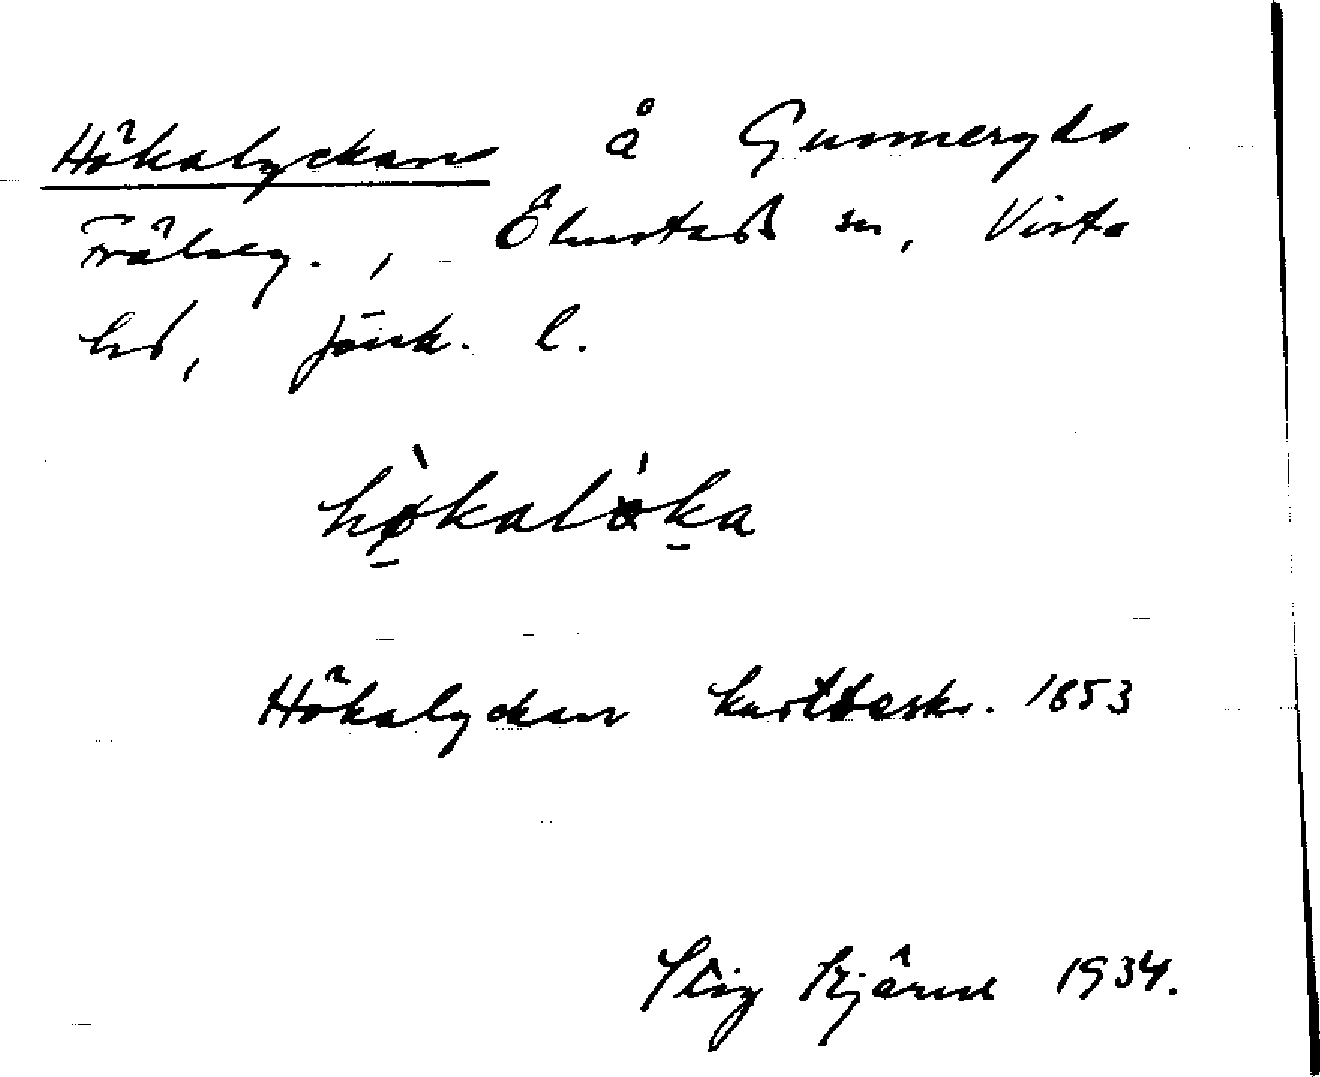 Hökalyckan å Gunneryds
Frälseg., Ölmstads sn, Vista
hd, Jönk. l.
hø̀kalöka
Hökalyckan kartbeskr. 1853
Stig Bjärud 1934.